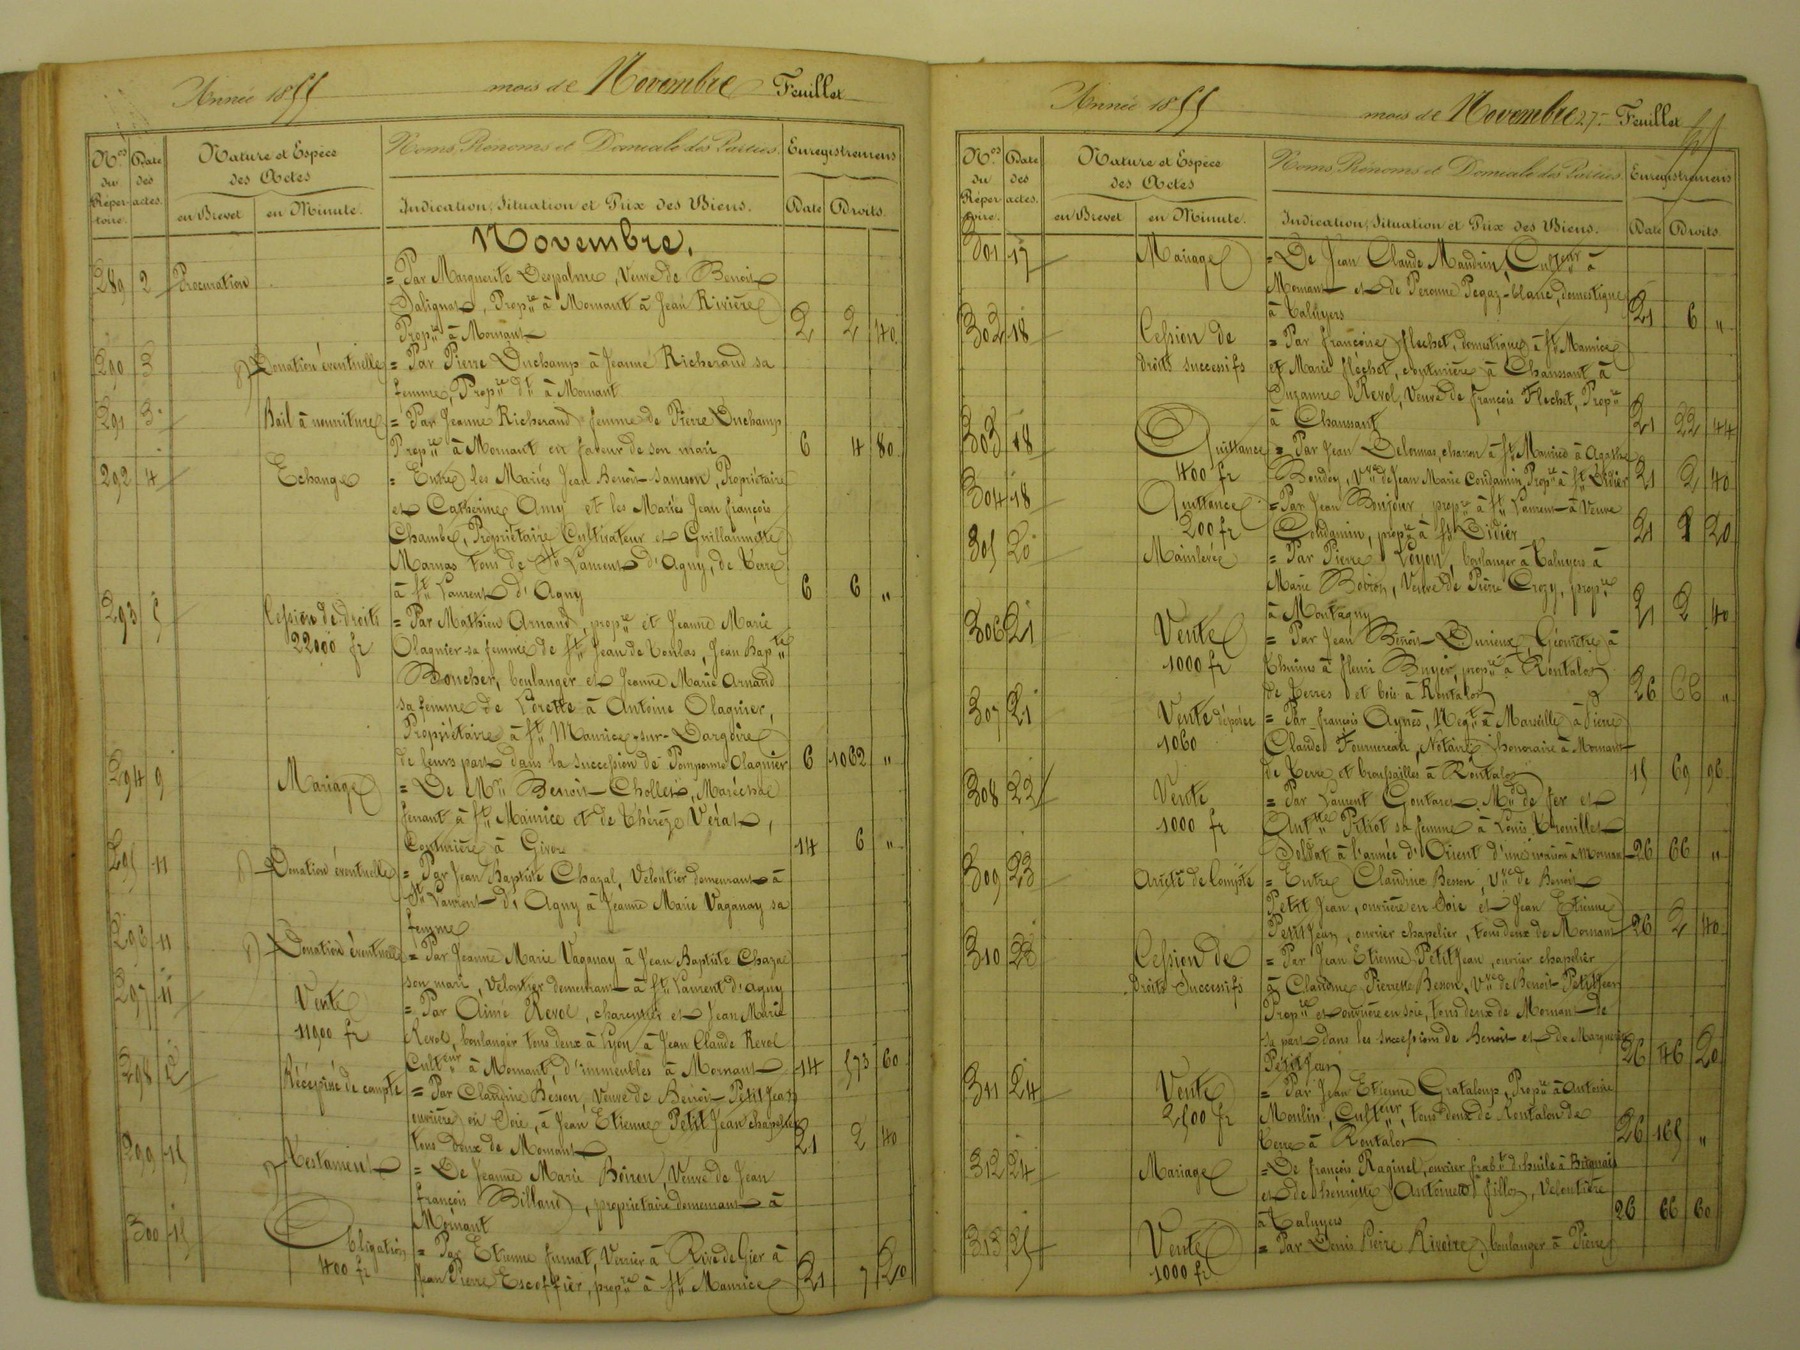 Année 1855 mois de Novembre Feuillet
Nos du Répertoire. Date des actes. Nature et Espèce des Actes Noms, Prénoms et Domicile des Parties. Enregistremens
en Brevet en Minute. Indication, Situation et Prix des Biens. Date Droits.
Novembre.
289 2 Procuration = Par Marguerite Despalme, Veuve de Benoit
Salignat, Propre à Mornant à Jean Rivière
Propre à Mornant 2 2 40
290 3 Donation éventuelle = Par Pierre Duchamp à Jeanne Richerand sa
femme, Propre dt à Mornant
291 3 Bail à nourriture = Par Jeanne Richerand femme de Pierre Duchamp
Propre à Mornant en faveur de son mari 6 4 80
292 4 Echange = Entre les Mariés Jean Benoit Samson, Propriétaire
et Catherine Amy et les Mariés Jean françois
Chambe, Propriétaire Cultivateur et Guillaumette
Marnas tous de St Laurent d'Agny, de Terre
à St Laurent d'Agny 6 6 "
293 5 Cession de droits = Par Mathieu Arnaud, propre et Jeanne Marie
22000 fr Olagnier sa femme de St Jean de Toulas, Jean Bapte
Boucher, boulanger et Jeanne Marie Arnaud
sa femme de Lorette à Antoine Olagnier,
Propriétaire à St Maurice-sur-Dargoire
de leurs part dans la succession de Pomponne Olagnier 6 1062 "
294 9 Mariage = De Mr Benoit Chollet, Maréchal
ferrant à St Maurice et de Thérèze Vérat,
Couturière à Givors 14 6 "
295 11 Donation éventuelle = Par Jean Baptiste Chazal, Veloutier demeurant à
St Laurent d'Agny à Jeanne Marie Vaganay sa
femme
296 11 Donation éventuelle = Par Jeanne Marie Vaganay à Jean Baptiste Chazal
son mari, Veloutier demeurant à St Laurent d'Agny
297 11 Vente = Par Aimé Revol, charcutier et Jean Marie
11900 fr Revol, boulanger tous deux à Lyon à Jean Claude Revol
Culteur à Mornant d'immeubles à Mornant 14 573 60
298 12 Récépissé de compte = Par Claudine Besson, Veuve de Benoit Petit Jean
ouvrière en Soie, à Jean Etienne Petit Jean chapelier
tous deux de Mornant 21 2 40
299 15 Testament = De Jeanne Marie Boiron, Veuve de Jean
françois Billand, propriétaire demeurant à
Mornant
300 15 Obligation = Par Etienne fumat, Verrier à Rive de Gier à
400 fr Jean Pierre Escoffier, propre à St Maurice 21 7 20
Année 1855 mois de Novembre 27- Feuillet
Nos du Répertoire. Date des actes. Nature et Espèce des Actes Noms, Prénoms et Domicile des Parties. Enregistremens
en Brevet en Minute. Indication, Situation et Prix des Biens. Date Droits.
301 17 Mariage = De Jean Claude Mandrin, Culteur à
Mornant et de Peronne Pegaz-blanc, domestique
à Taluyers 21 6 "
302 18 Cession de = Par françoise flechet, domestique à St Maurice
droits successifs et Marie fléchet, couturière à Chaussant à
Suzanne Revol, Veuve de françois Flechet, Propre
à Chaussant 21 22 44
303 18 Quittance = Par Jean Delormas, charon à St Maurice à Agathe
400 fr Bondoy, Vve de Jean Marie Condamin, Propre à St Didier 21 2 40
304 18 Quittance = Par Jean Bonjour, propre à St Laurent à Veuve
200 fr Condamin, propre à St Didier 21 1 20
305 20 Mainlevée = Par Pierre Voyon, boulanger à Taluyers à
Marie Boiron, Veuve de Pierre Crozy, propre
à Montagny 21 2 40
306 21 Vente = Par Jean Benoit Durieux, Géomètre à
1000 fr Thurins à fleuri Buyer, propre à Rontalon
de Terres et bois à Rontalon 26 66 "
307 21 Vente déposée = Par françois Aynès, Negt à Marseille à Pierre
1060 Claude Fournereau, Notaire honoraire à Mornant
de Terre et broussailles à Rontalon 15 69 96
308 22 Vente = Par Laurent Goutaret, Md de fer et
1000 fr Antte Pitiot sa femme à Louis Trouillet
Soldat à l'armée d'Orient d'une maison à Mornant 26 66 "
309 23 Arrêté de Compte = Entre Claudine Besson, Vve de Benoit
Petit Jean, ouvrière en Soie et Jean Etienne
Petit Jean, ouvrier chapelier, tous deux de Mornant 26 2 40
310 23 Cession de = Par Jean Etienne Petit Jean, ouvrier chapelier
Droits Successifs à Claudine Pierrette Besson, Vve de Benoit Petit Jean
Propre et ouvrière en soie, tous deux de Mornant de
sa part dans les successions de Benoit et de Marguerite
Petit Jean 26 46 20
311 24 Vente = Par Jean Etienne Grataloup, Propre à Antoine
2500 fr Moulin, Culteur, tous deux de Rontalon de
Terre à Rontalon 26 165 "
312 24 Mariage = De françois Raginel, ouvrier frabt d'huile à Brignais
et de henriette Antoinette fillon, Veloutière
à Taluyers 26 66 60
313 25 Vente = Par Denis Pierre Rivoire, boulanger à Pierre
1000 fr